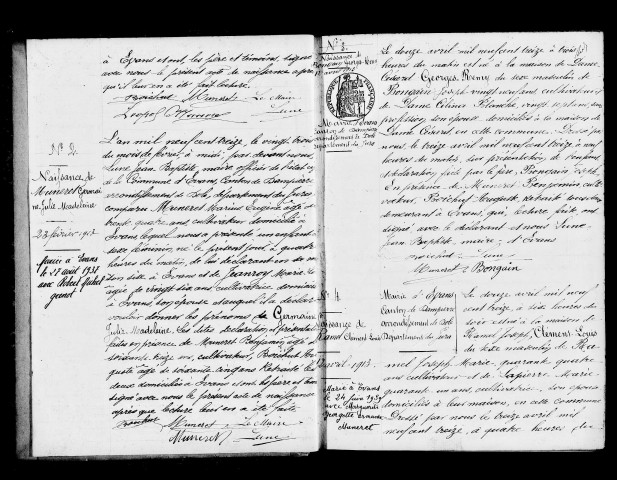 à Evans et ont, les père et témoins, signé
avec nous le présent acte de naissance après
qu'il leur en a été fait lecture.
Muneret Le Maire
Lune
N° 2
Naissance de
Muneret Germai
ne, Julie Madeleine
23 février 1913
Mariée à Evans
le 27 août 1931
avec Robert
L'an mil neuf cent treize, le vingt trois
du mois de février, à midi, par devant nous,
Lune Jean Baptiste, maire officier de l'état civil
de la Commune d'Evans, Canton de Dampierre
arrondissement de Dole, département du Jura
comparu Muneret Marius Eugène âgé de
trente quatre ans, cultivateur domicilié à
Evans lequel nous a présenté un enfant
du sexe féminin, né le présent jour à quatre
heures du matin, de lui déclarant en sa mai
son sise à Evans et de Jeanroy Marie
âgée de vingt six ans, cultivatrice domiciliée
à Evans, son épouse et auquel il a déclaré
vouloir donner les prénoms de Germaine
Julie Madeleine. Les dites déclaration et présentation
faites en présence de Muneret Benjamin âgé de
soixante treize ans, cultivateur,
âgé de soixante cinq ans Retraité les
deux domiciliés à Evans et ont les père et témoins
signé avec nous le présent acte de naissance
après que lecture leur en a été faite
Muneret Le Maire
Muneret Lune
N° 3
Naissance de
Bongain Georges Rémy
12 avril 1913
RÉPUBLIQUE FRANÇAISE
Mairie d'Evans
Canton de Dampierre
arrondissement de Dole
département du Jura
Le douze avril mil neuf cent treize à trois
heures du matin est né à la maison de Dame
Cesard Georges, Rémy du sexe masculin de
Bongain Joseph vingt neuf ans cultivateur
et de Dame Célina Blanche, vingt sept ans, sans
profession, son épouse domiciliés à la maison de
Dame Cesard en cette commune. Dressé par
nous, le treize avril mil neuf cent treize à neuf
heures du matin, sur présentation de l'enfant
et déclaration faite par le père, Bongain Joseph.
En présence de Muneret Benjamin culti
vateur, Auguste, retraité tous deux
demeurant à Evans, qui, lecture faite ont
signé avec le déclarant et nous Lune
Jean Baptiste maire d'Evans
Lune
Muneret Bongain
N° 4
Naissance de
Ramel Clément Louis
12 avril 1913
Marié à Evans
le 24 juin 1937
avec Marguerite
Georgette
Muneret
Mairie d'Evans
Canton de Dampierre
arrondissement de Dole
Département du Jura
Le douze avril mil neuf
cent treize, à sept heures du
soir est né à la maison de
Ramel Joseph, Clément, Louis
du sexe masculin, de Ra
mel Joseph, Marie, quarante quatre
ans cultivateur et de Lapierre Marie
quarante ans, cultivatrice, son épouse
domiciliés à leur maison, en cette commune
Dressé par nous le treize avril mil
neuf cent treize, à quatre heures du